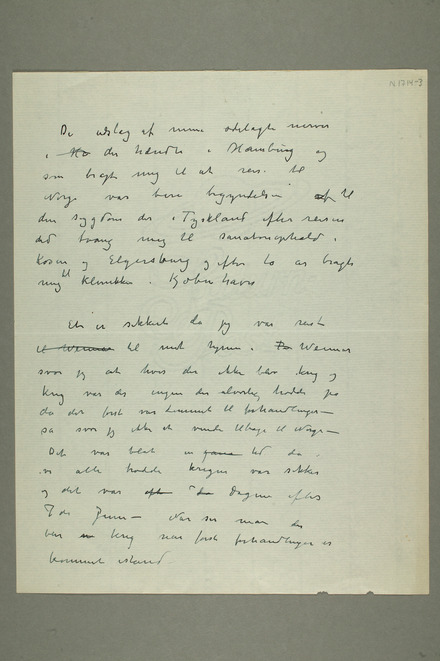 N 1714-3
De udslag af mine ødelagte nerver
i der hændte i Hamburg og
som bragte mig til at reise til
Norge var bare begyndelsen af til
den sygdom der i Tyskland efter reisen
tvang mig til sanatorieophold i
Kösen og Elgersburg og efter to år bragte
mig til Klinikken i Kjøbenhavn
Et er sikkert da jeg var reist
til Weimar til mit hjem i Weimar
svor jeg at hvis der ikke blev krig og
krig var der ingen der alvorlig trodde på
da det først var kommet til forhandlinger –
så svor jeg ikke at vende tilbage til Norge –
Det var blot en tid da
vi alle trodde krigen var sikker
og det var Dagene efter
7de Juni – Når ser man der
blir krig når først forhandlinger er
kommet istand